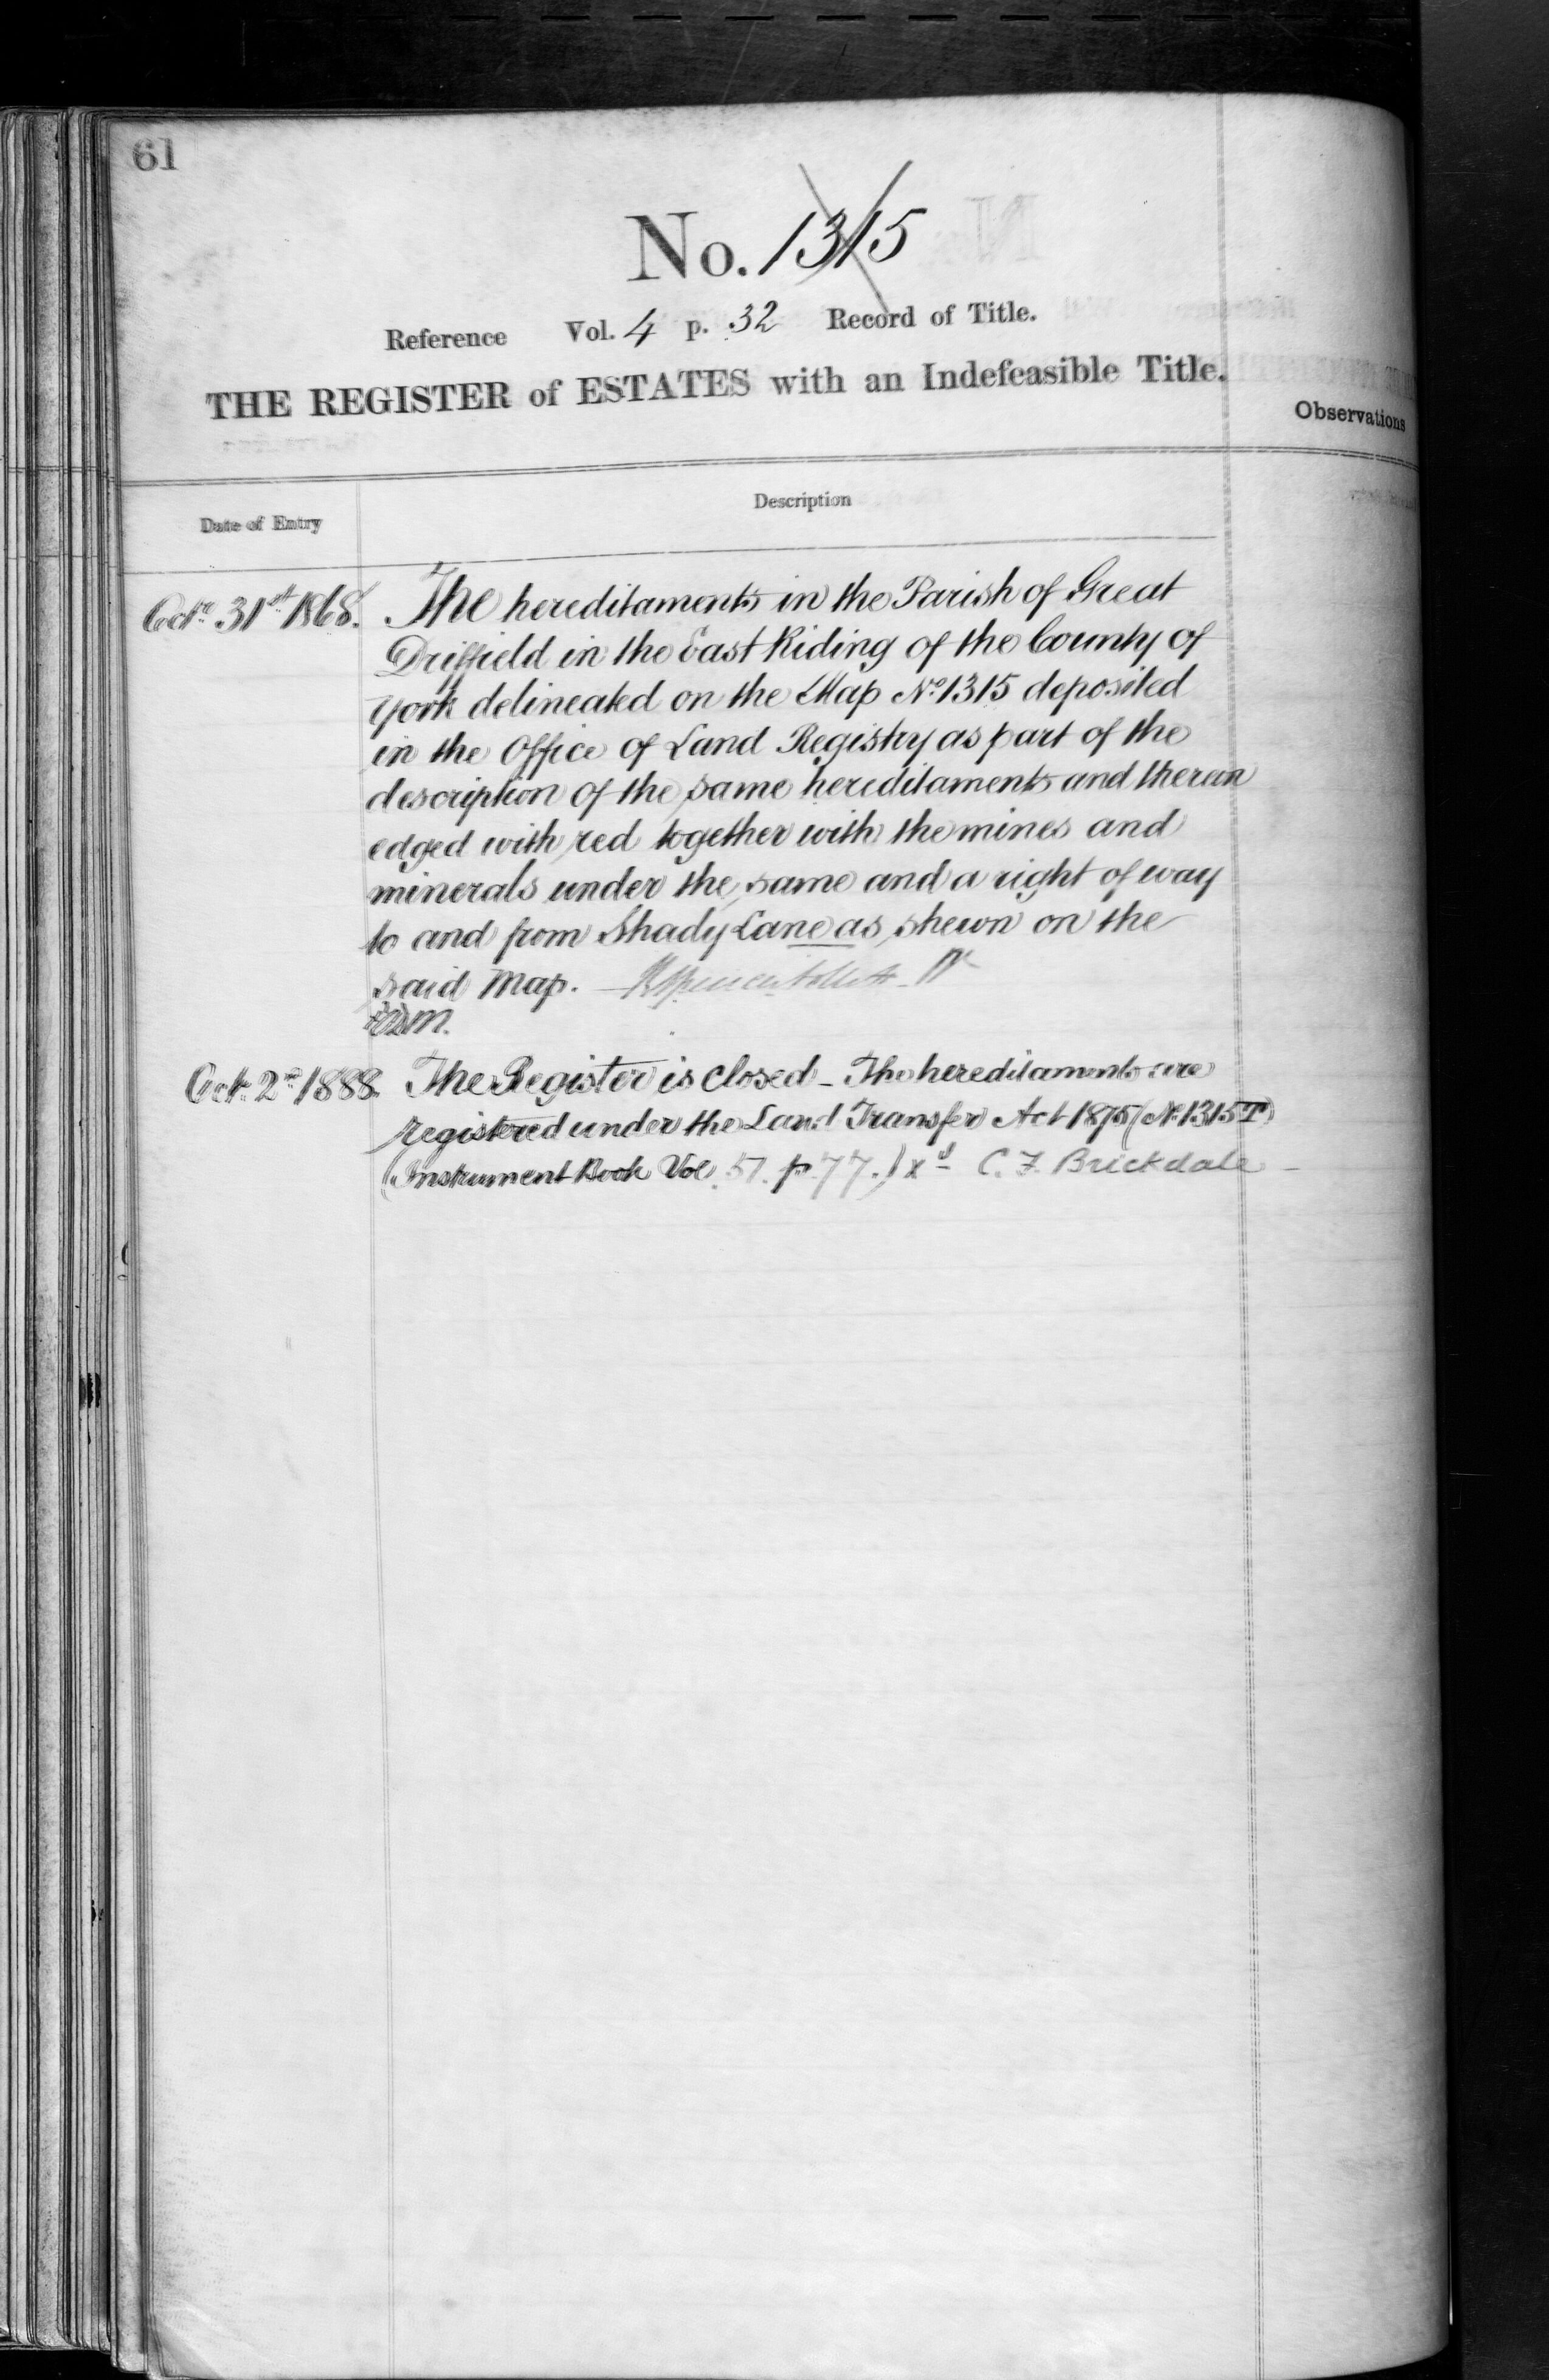 61
No. 1315
Reference Vol. 4 p. 32 Record of Title.
THE REGISTER of ESTATES with an Indefeasible Title.
Observations
Date of Entry
Description
Octr. 31st 1868. The hereditaments in the Parish of Great
Driffield in the East Riding of the County of
York delineated on the Map No. 1315 deposited
in the Office of Land Registry as part of the
description of the same hereditaments and therein
edged with red together with the mines and
minerals under the same and a right of way
to and from Shady Lane as shewn on the
said Map.
Oct. 2nd 1888. The Register is closed - The hereditaments are
registered under the Land Transfer Act 1875 (No. 1315 T)
(Instrument Book Vol. 57. p. 77.) xd C. F. Brickdale